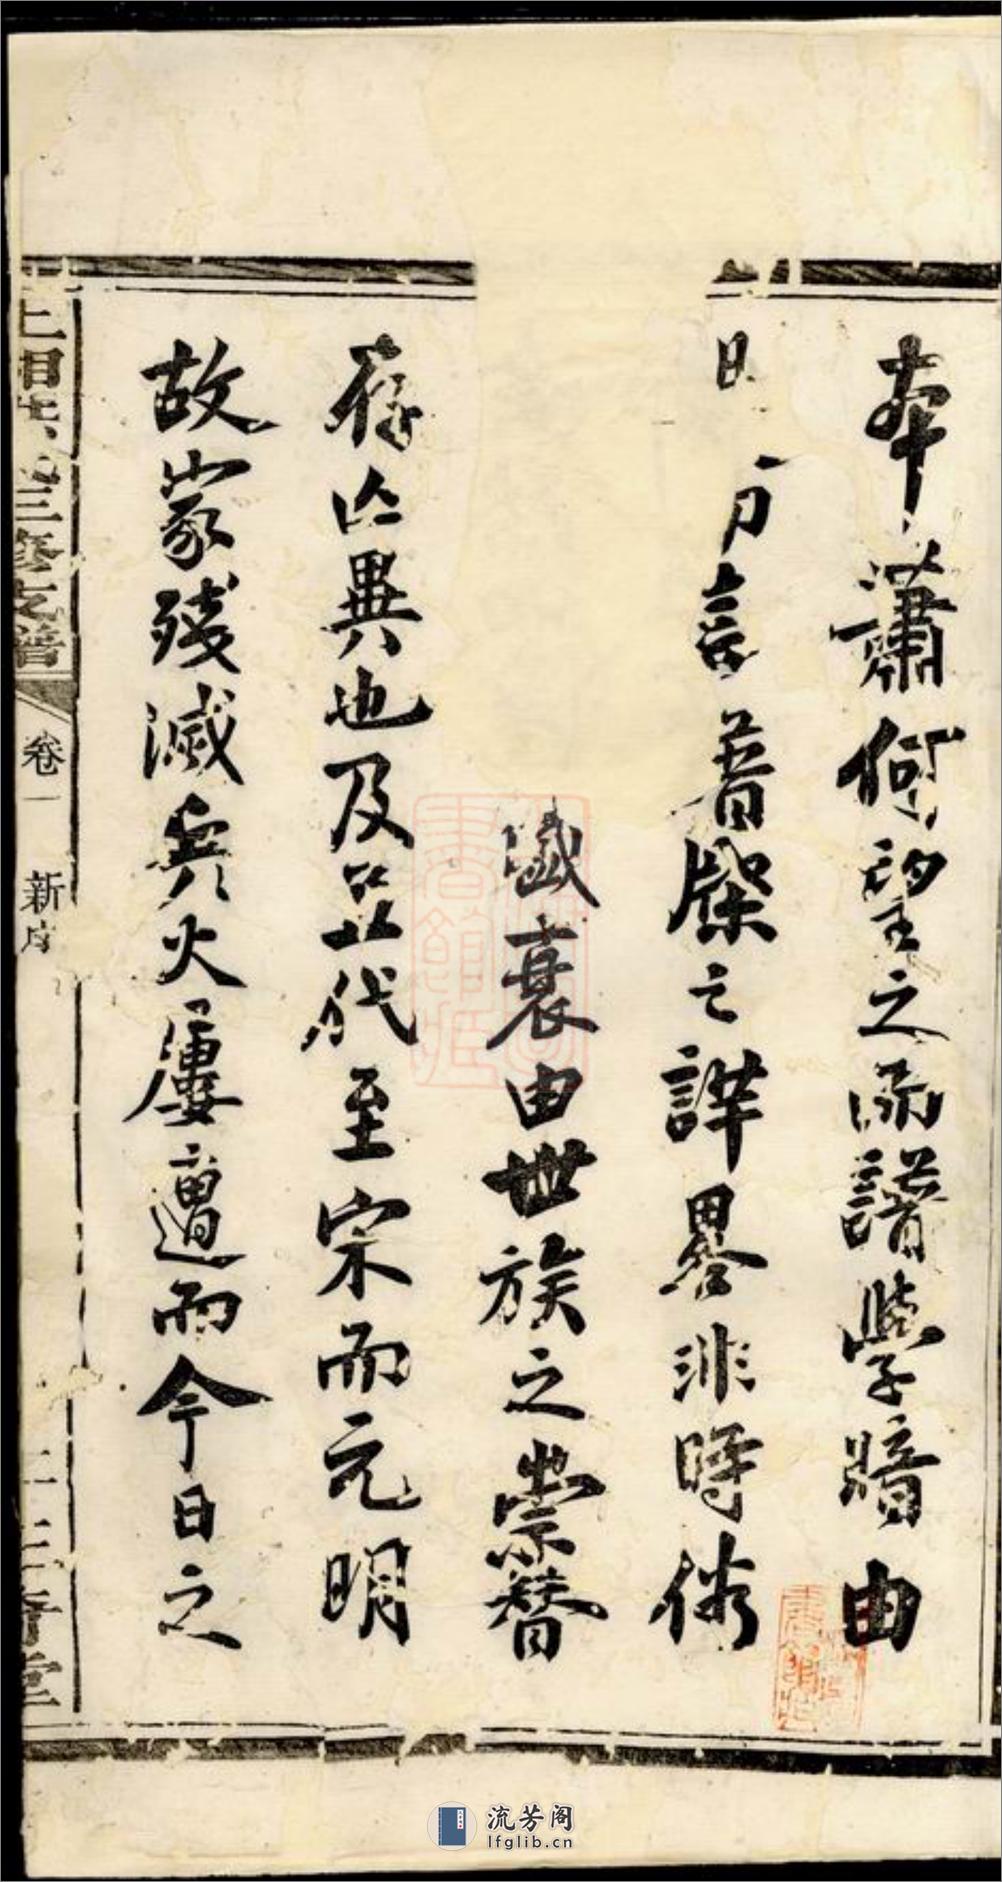 本蕭何望之而譜學牆由
言昔牒之詳畧非時俗
盛衰由世族之崇替
存亡異也及五代至宗而元明
故家殘滅兵火屢遭而今日之
三修支譜
卷一 新序
流芳阁
lfglib.cn